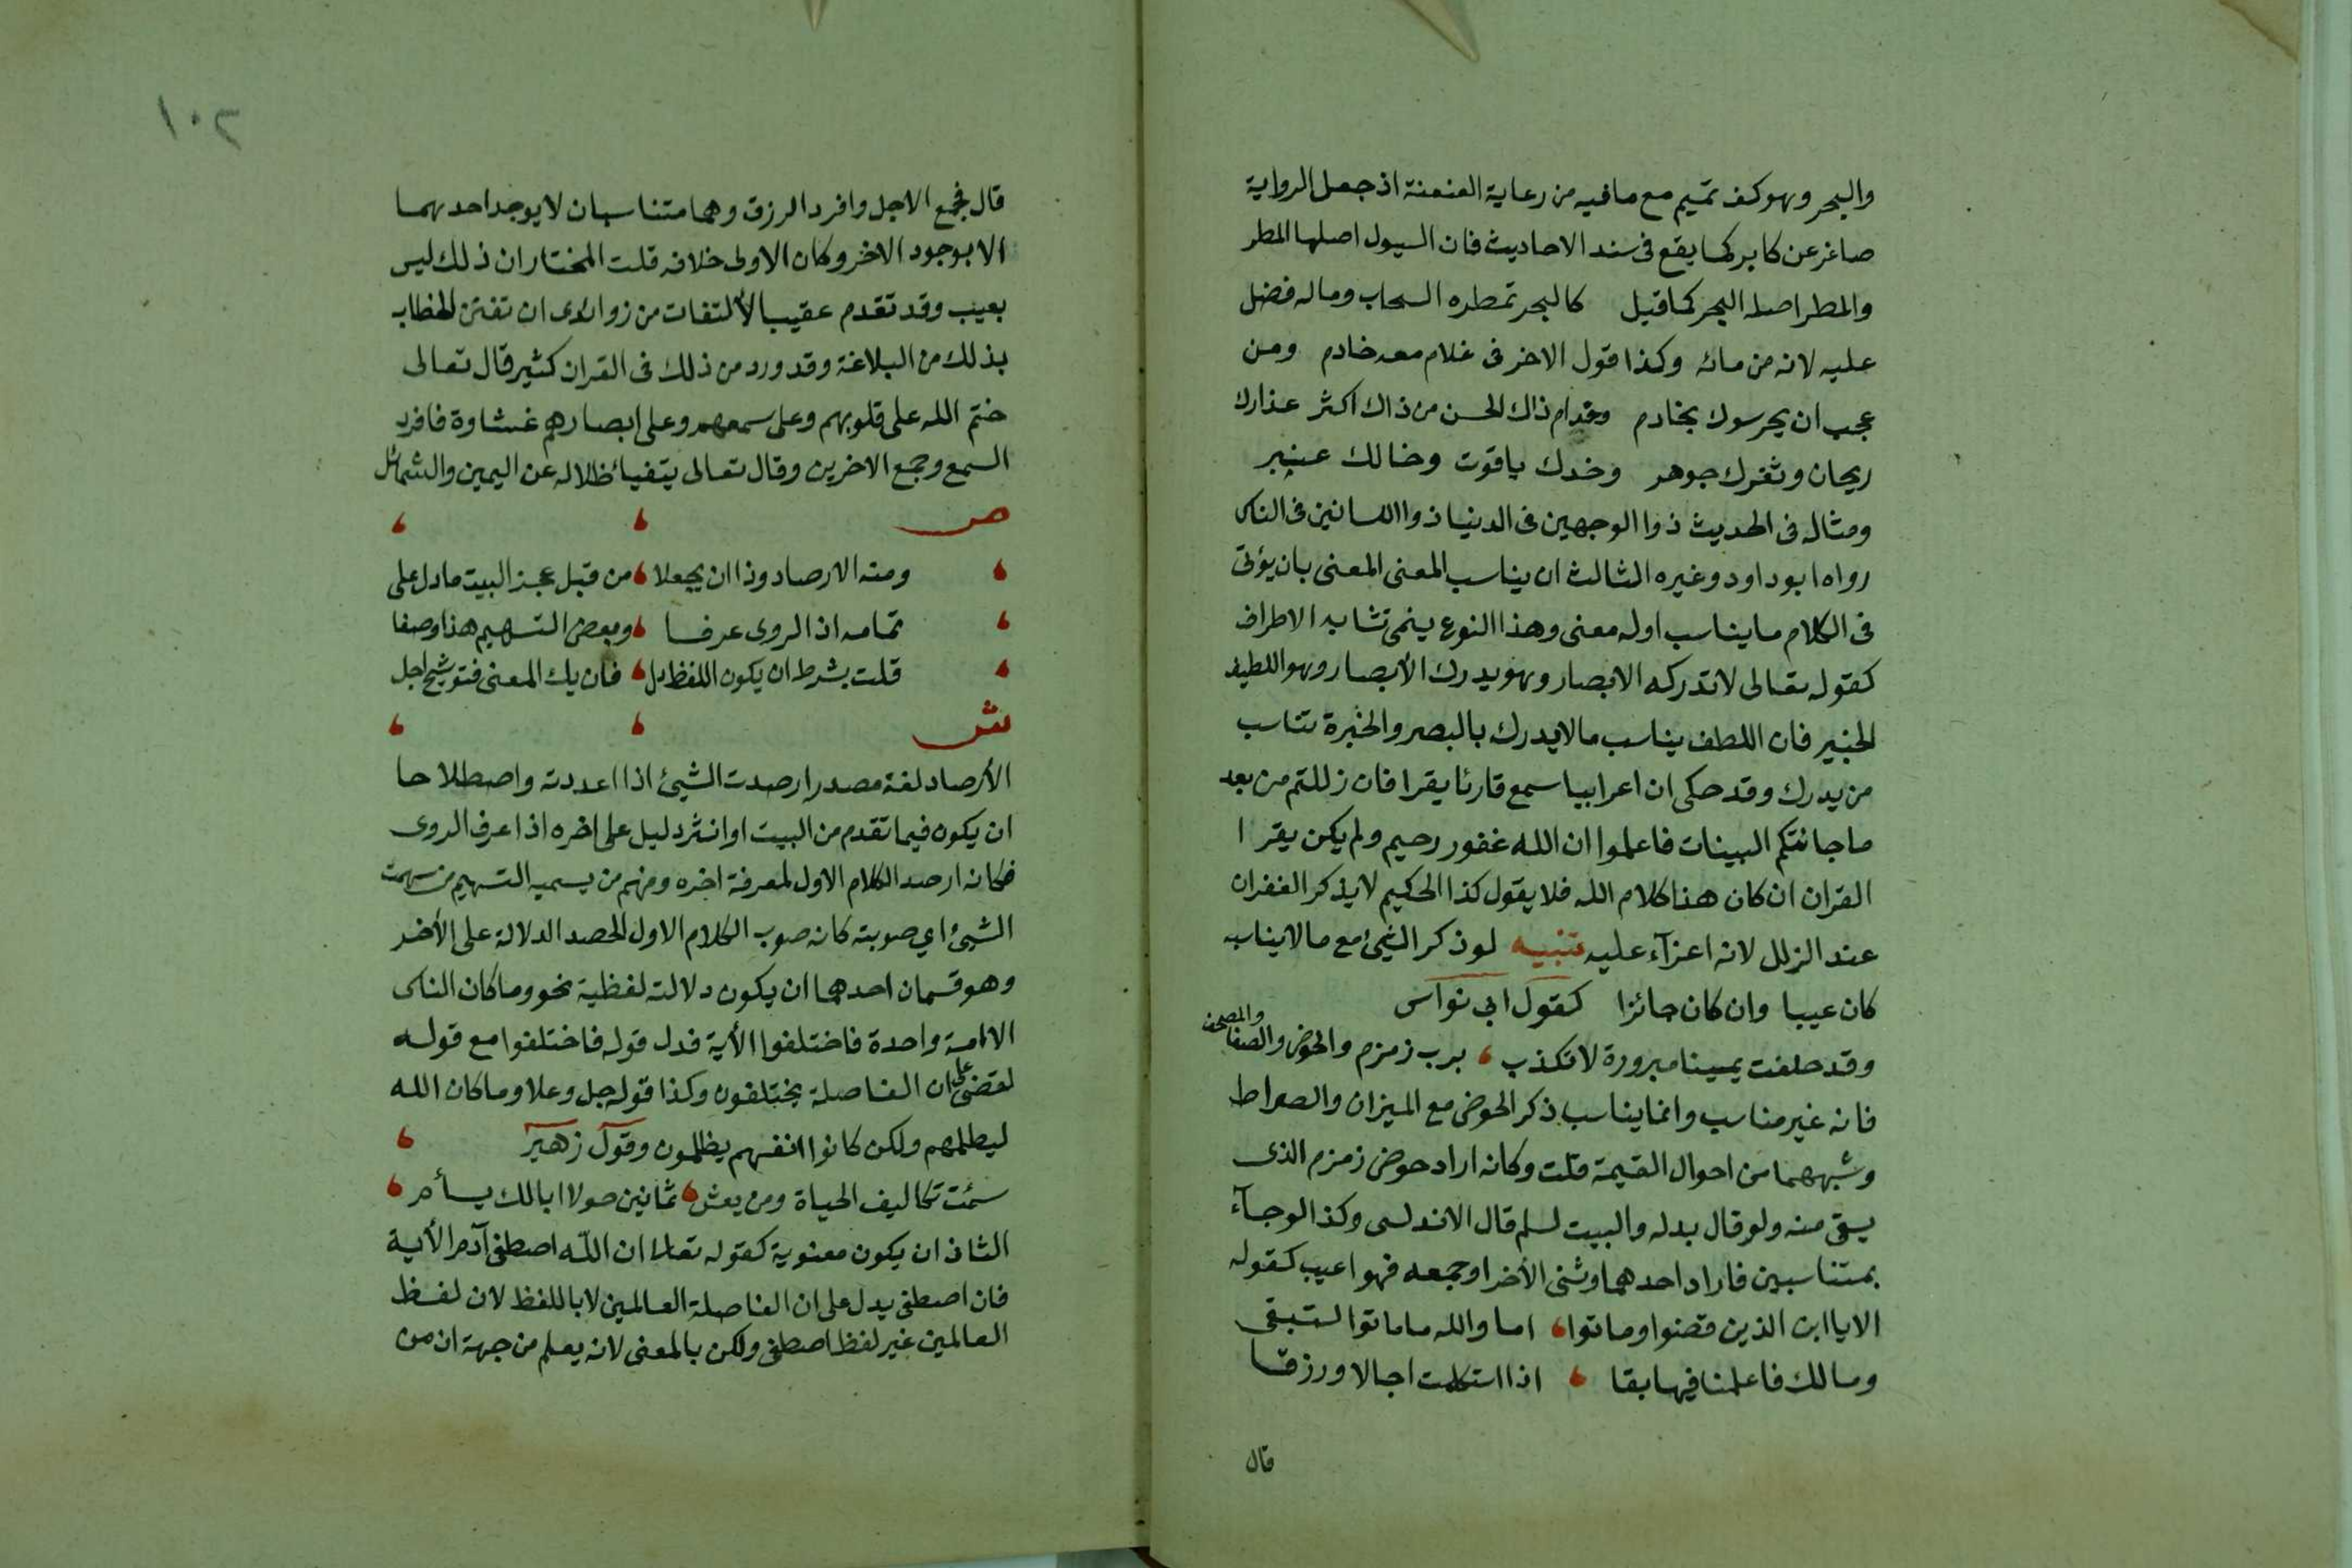 والبحر وهو كف تميم مع ما فيه من رعاية العنعنة اذ جعل الرواية
صاغر عن كابر كما يقع فى سند الاحاديث فان السيول اصلها المطر
والمطر اصله البحر كما قيل كالبحر تمطره السحاب وماله فضل
عليه لانه من مائه وكذا قول الاخر فى غلام معه خادم ومن
عجب ان يحرسوك بخادم وخدام ذاك الحسن من ذاك اكثر عذارك
ريحان وثغرك جوهر وخدك ياقوت وخالك عنبر
ومثاله فى الحديث ذوا الوجهين فى الدنيا ذوا اللسانين فى الناس
رواه ابو داود وغيره الثالث ان يناسب المعنى المعنى بان يؤتى
فى الكلام ما يناسب اوله معنى وهذا النوع ينمى تشابه الاطراف
كقوله تعالى لا تدركه الابصار وهو يدرك الأبصار وهو اللطيف
الخبير فان اللطف يناسب ما لا يدرك بالبصر والخبرة تناسب
من يدرك وقد حكى ان اعرابيا سمع قارئا يقرا فان زللتم من بعد
ما جائتكم البينات فاعلموا ان الله غفور رحيم ولم يكن يقرا
القران ان كان هذا كلام الله فلا يقول كذا الحكيم لا يذكر الغفران
عند الزلل لانه اعزآء عليه تنبيه لو ذكر الشيئ مع ما لا يناسبه
كان عيبا وان كان جائزا كقول ابى نواس
وقد حلفت يمينا مبرورة لا تكذب ، برب زمزم والحوض والصفا والمصحف
فانه غير مناسب وانما يناسب ذكر الحوض مع الميزان والصراط
وشبههما من احوال القيمة قلت وكانه اراد حوض زمزم الذى
يسقى منه ولو قال بدله والبيت لسلم قال الاندلسى وكذا لو جآء
بمتناسبين فاراد احدهما وثنى الأخر او جمعه فهو اعيب كقوله
الا يا ابن الذين فنوا وماتوا ، اما والله ما ماتوا لتبقى
ومالك فاعلمنا فيها بقا ، اذا استكملت اجالا ورزقا
قال
١٠٢
قال فجمع الاجل وافرد الرزق وهما متناسبان لا يوجد احدهما
الا بوجود الاخر وكان الاولى خلافه قلت المختار ان ذلك ليس
بعيب وقد تقدم عقيب الألتفات من زوائدى ان تفنن الخطاب
بذلك من البلاغة وقد ورد من ذلك فى القران كثير قال تعالى
ختم الله على قلوبهم وعلى سمعهم وعلى ابصارهم غشاوة فافرد
السمع وجمع الاخرين وقال تعالى يتفيا ظلاله عن اليمين والشمائل
ص ، ،
، ومنه الارصاد وذا ان يجعلا ، من قبل عجز البيت ما دل على
، تمامه اذ الروى عرفا ، وبعض التسهيم هذا وصفا
، قلت بشرط ان يكون اللفظ دل ، فان يك المعنى فتوشيح اجل
ش ، ،
الأرصاد لغة مصدر ارصدت الشيئ اذا اعددته واصطلاحا
ان يكون فيما تقدم من البيت او انثر دليل على اخره اذا عرف الروى
فكانه ارصد الكلام الاول لمعرفة اخره ومنهم من يسميه التسهيم من سهمت
الشيئ اي صوبته كانه صوب الكلام الاول لقصد الدلالة على الأخر
وهو قسمان احدهما ان يكون دلالته لفظية نحو وما كان الناس
الا امة واحدة فاختلفوا الأية فدل قوله فاختلفوا مع قوله
لقضى على ان الفاصلة يختلفون وكذا قوله جل وعلا وما كان الله
ليظلمهم ولكن كانوا انفسهم يظلمون وقول زهير ،
سئمت تكاليف الحياة ومن يعش ، ثمانين حولا ابالك يسأم ،
الثانى ان يكون معنوية كقوله تعالى ان اللّه اصطفى آدم الأية
فان اصطفى يدل على ان الفاصلة العالمين لا باللفظ لان لفظ
العالمين غير لفظ اصطفى ولكن بالمعنى لانه يعلم من جهة ان من